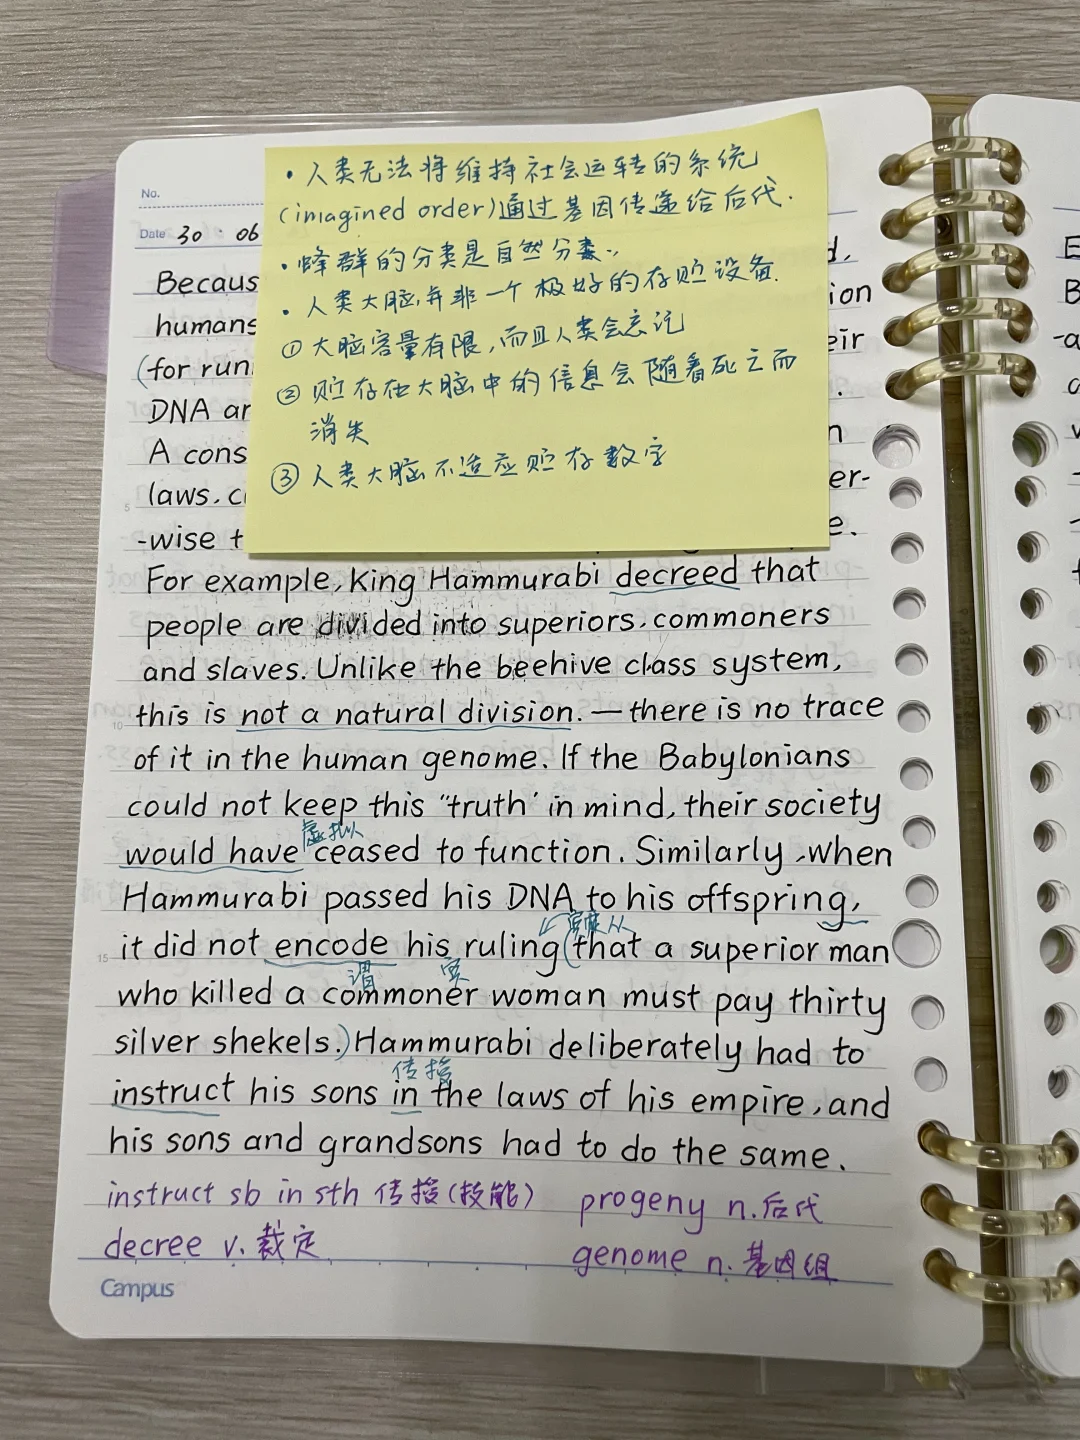 No.
Date 30 · 06
· 人类无法将维持社会运转的系统
(imagined order)通过基因传递给后代.
· 蜂群的分类是自然分类.
· 人类大脑并非一个极好的存贮设备.
① 大脑容量有限,而且人类会忘记
② 贮存在大脑中的信息会随着死亡而
消失
③ 人类大脑不适应贮存数字
d,
Becaus
ion
humans
eir
(for run
DNA ar
A cons
n
laws, c
er-
5
-wise t
e.
For example, King Hammurabi decreed that
people are divided into superiors, commoners
and slaves. Unlike the beehive class system,
this is not a natural division. — there is no trace
10
of it in the human genome. If the Babylonians
could not keep this "truth' in mind, their society
虚拟
would have ceased to function. Similarly, when
Hammurabi passed his DNA to his offspring,
宾从
it did not encode his ruling (that a superior man
15
谓 宾
who killed a commoner woman must pay thirty
silver shekels.) Hammurabi deliberately had to
传授
instruct his sons in the laws of his empire, and
his sons and grandsons had to do the same.
instruct sb in sth 传授(技能) progeny n.后代
decree v. 裁定 genome n. 基因组
Campus